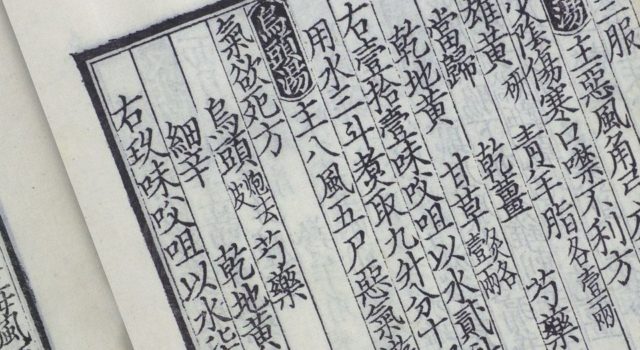 三服
湯主惡風角弓
陰傷寒口噤不利方
雄黃研 青羊脂各壹兩
當歸 乾薑 芍藥
乾地黃 甘草
右壹拾壹味㕮咀以水貳
用水三斗煮取九升分十
烏頭湯主八風五尸惡氣
氣欲死方
烏頭炮去皮 芍藥
細辛 乾地黃
右玖味㕮咀以水